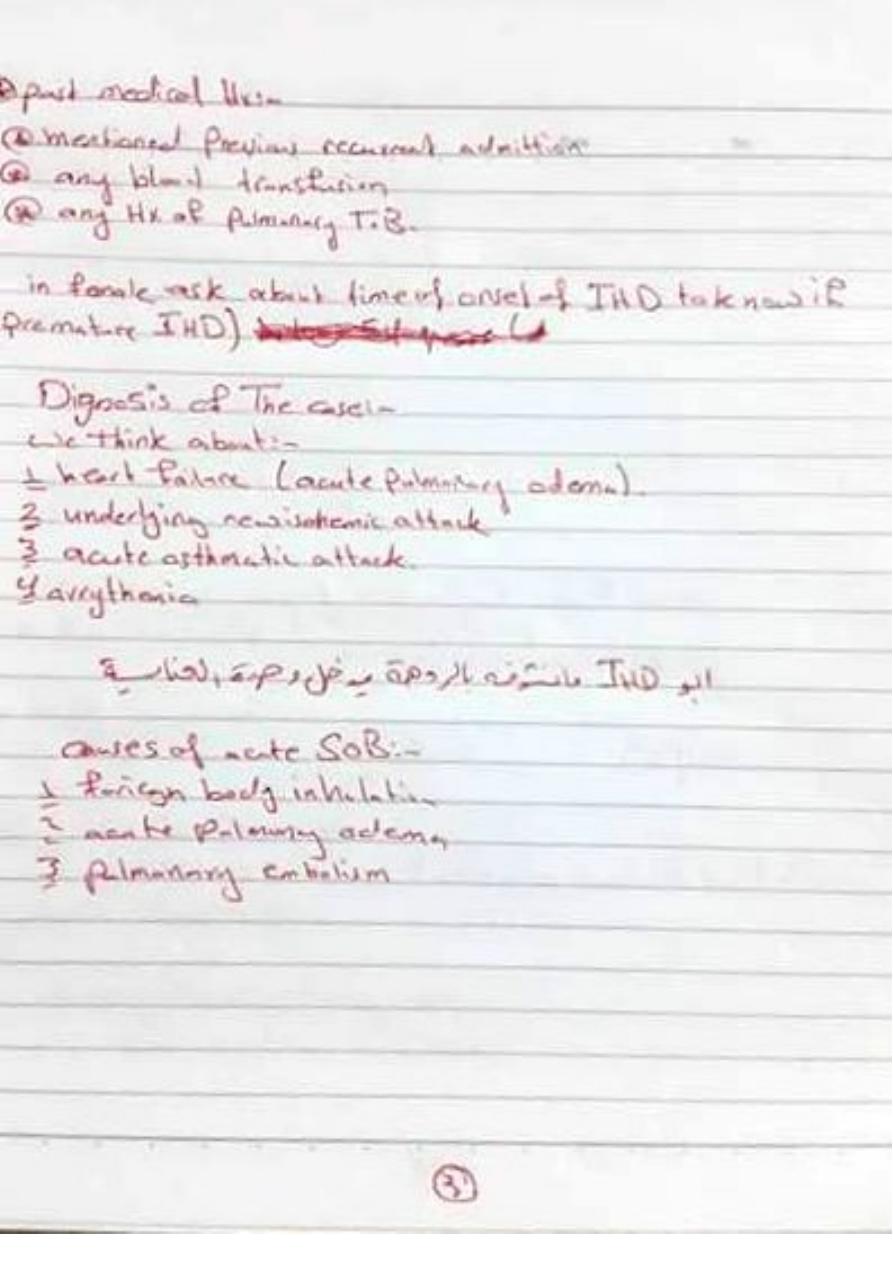 past medical Hx:-
* mentioned Previous recurrent admittion
* any blood transfusion
* any Hx of Pulmonary T.B.
in female ask about time of onset of IHD to know if
premature IHD)
Dignosis of The case:-
we think about:-
1 heart failure (acute Pulmonary odema).
2 underlying new ischemic attack
3 acute asthmatic attack.
4 arrythmia
ابو IHD مانشوفه بالردهة يدخل وحدة العناية
causes of acute SOB:-
1 foriegn body inhalation
2 acute Pulmonary odema
3 Pulmonary embolism
3